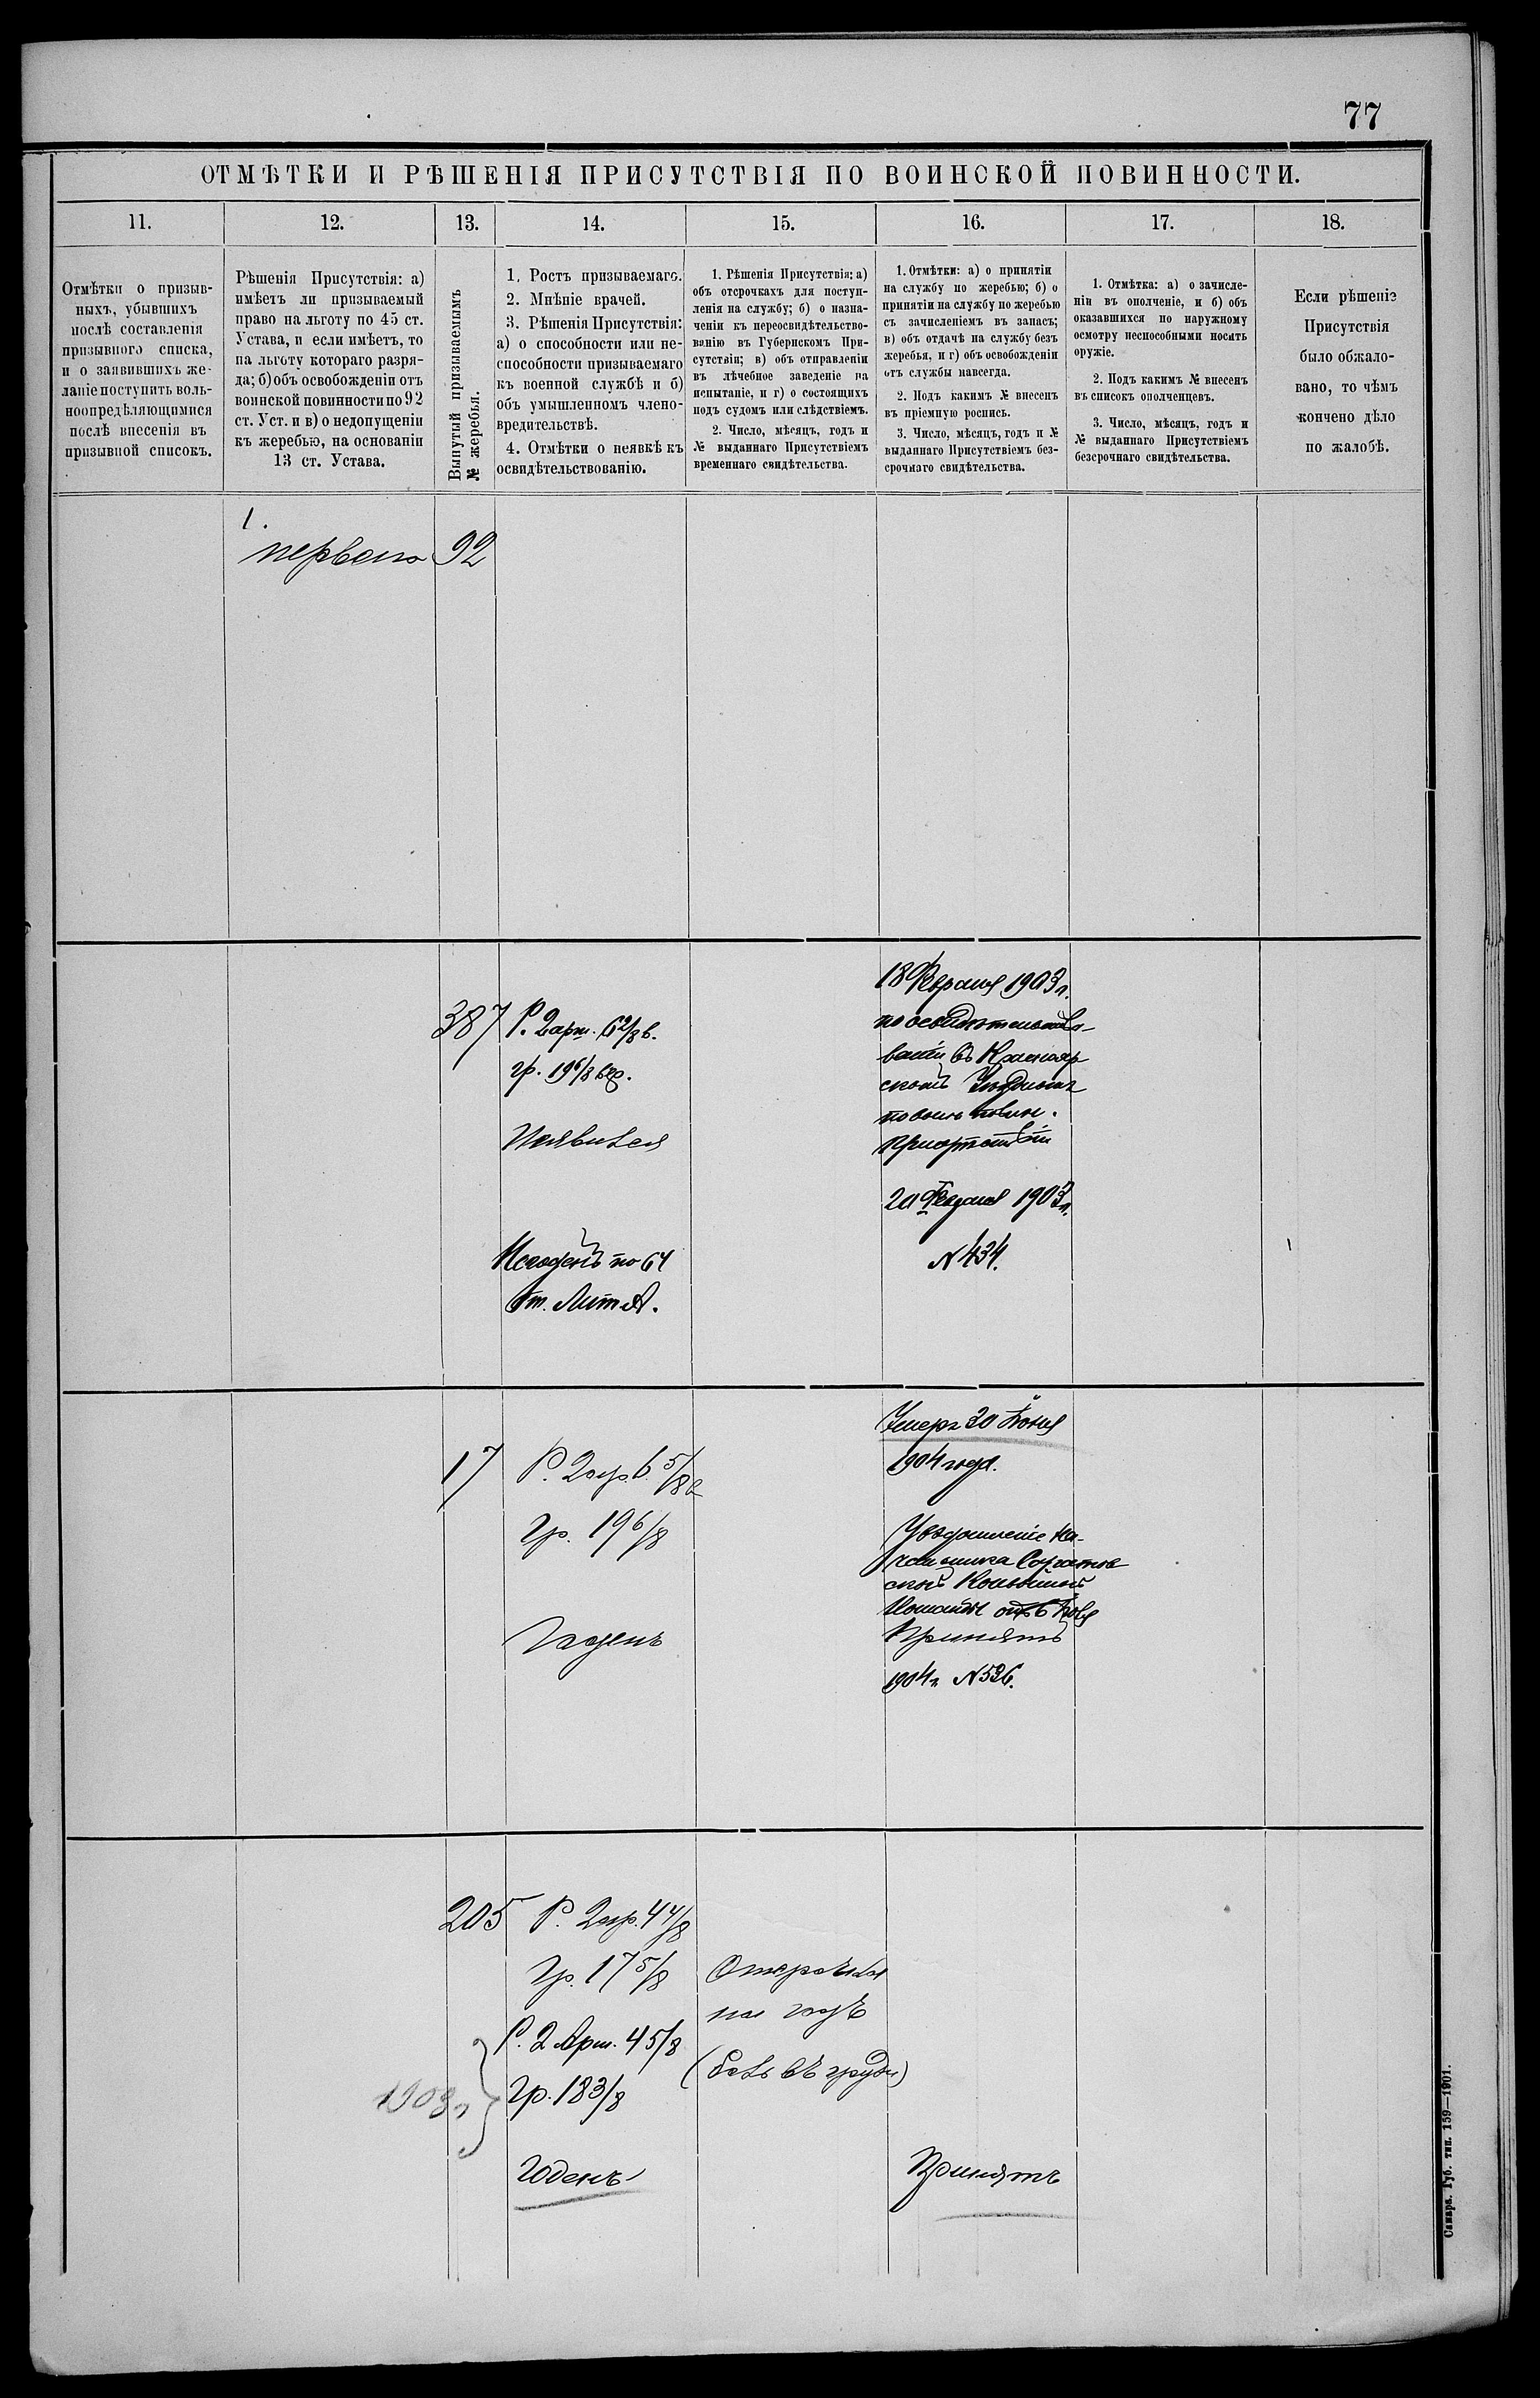 77
ОТМѢТКИ И РѢШЕНІЯ ПРИСУТСТВІЯ ПО ВОИНСКОЙ ПОВИННОСТИ.
11.
12.
13.
14.
15.
16.
17.
18.
Отмѣтки о призыв-
ныхъ, убывшихъ
послѣ составленія
призывного списка,
и о заявившихъ же-
ланіе поступить воль-
ноопредѣляющимися
послѣ внесенія въ
призывной списокъ.
Рѣшенія Присутствія: а)
имѣетъ ли призываемый
право на льготу по 45 ст.
Устава, и если имѣетъ, то
на льготу котораго разря-
да; б) объ освобожденіи отъ
воинской повинности по 92
ст. Уст. и в) о недопущеніи
къ жеребью, на основаніи
13 ст. Устава.
Вынутый призываемымъ
№ жеребья.
1. Ростъ призываемаго.
2. Мнѣніе врачей.
3. Рѣшенія Присутствія:
а) о способности или не-
способности призываемаго
къ военной службѣ и б)
объ умышленномъ члено-
вредительствѣ.
4. Отмѣтки о неявкѣ къ
освидѣтельствованію.
1. Рѣшенія Присутствія: а)
объ отсрочкахъ для поступ-
ленія на службу; б) о назна-
ченіи къ переосвидѣтельство-
ванію въ Губернскомъ При-
сутствіи; в) объ отправленіи
въ лѣчебное заведеніе на
испытаніе, и г) о состоящихъ
подъ судомъ или слѣдствіемъ.
2. Число, мѣсяцъ, годъ и
№ выданнаго Присутствіемъ
временнаго свидѣтельства.
1. Отмѣтки: а) о принятіи
на службу по жеребью; б) о
принятіи на службу по жеребью
съ зачисленіемъ въ запасъ;
в) объ отдачѣ на службу безъ
жеребья, и г) объ освобожденіи
отъ службы навсегда.
2. Подъ какимъ № внесенъ
въ пріемную роспись.
3. Число, мѣсяцъ, годъ и №
выданнаго Присутствіемъ без-
срочнаго свидѣтельства.
1. Отмѣтка: а) о зачисле-
ніи въ ополченіе, и б) объ
оказавшихся по наружному
осмотру неспособными носить
оружіе.
2. Подъ какимъ № внесенъ
въ списокъ ополченцевъ.
3. Число, мѣсяцъ, годъ и
№ выданнаго Присутствіемъ
безсрочнаго свидѣтельства.
Если рѣшеніе
Присутствія
было обжало-
вано, то чѣмъ
кончено дѣло
по жалобѣ.
1.
первого
92
387
Р. 2 арш. 6 2/8 в.
гр. 19 6/8 вер.
Неявился
Негоденъ по 64
ст. Лит А.
18 Февраля 1903 г.
по освидѣтельство-
ваніи въ Краснояр
скомъ Уѣздномъ
по воин. повин.
присутствіи
20 Февраля 1903 г.
№ 434.
17
Р. 2 ар. 6 5/8 в
Гр. 19 6/8
Годенъ
Умеръ 30 Іюня
1904 года.
Увѣдомленіе На-
чальника Саратов
ской Конвойной
Команды отъ 6 Іюля
Принятъ
1904 г. № 536.
205
Р. 2 ар. 4 4/8
Гр. 17 5/8
Р. 2 Арш. 4 5/8
Гр. 18 3/8
Годенъ
Отсрочка
на годъ
(боль въ груди)
Принятъ
Самара. Губ. тип. 159—1901.